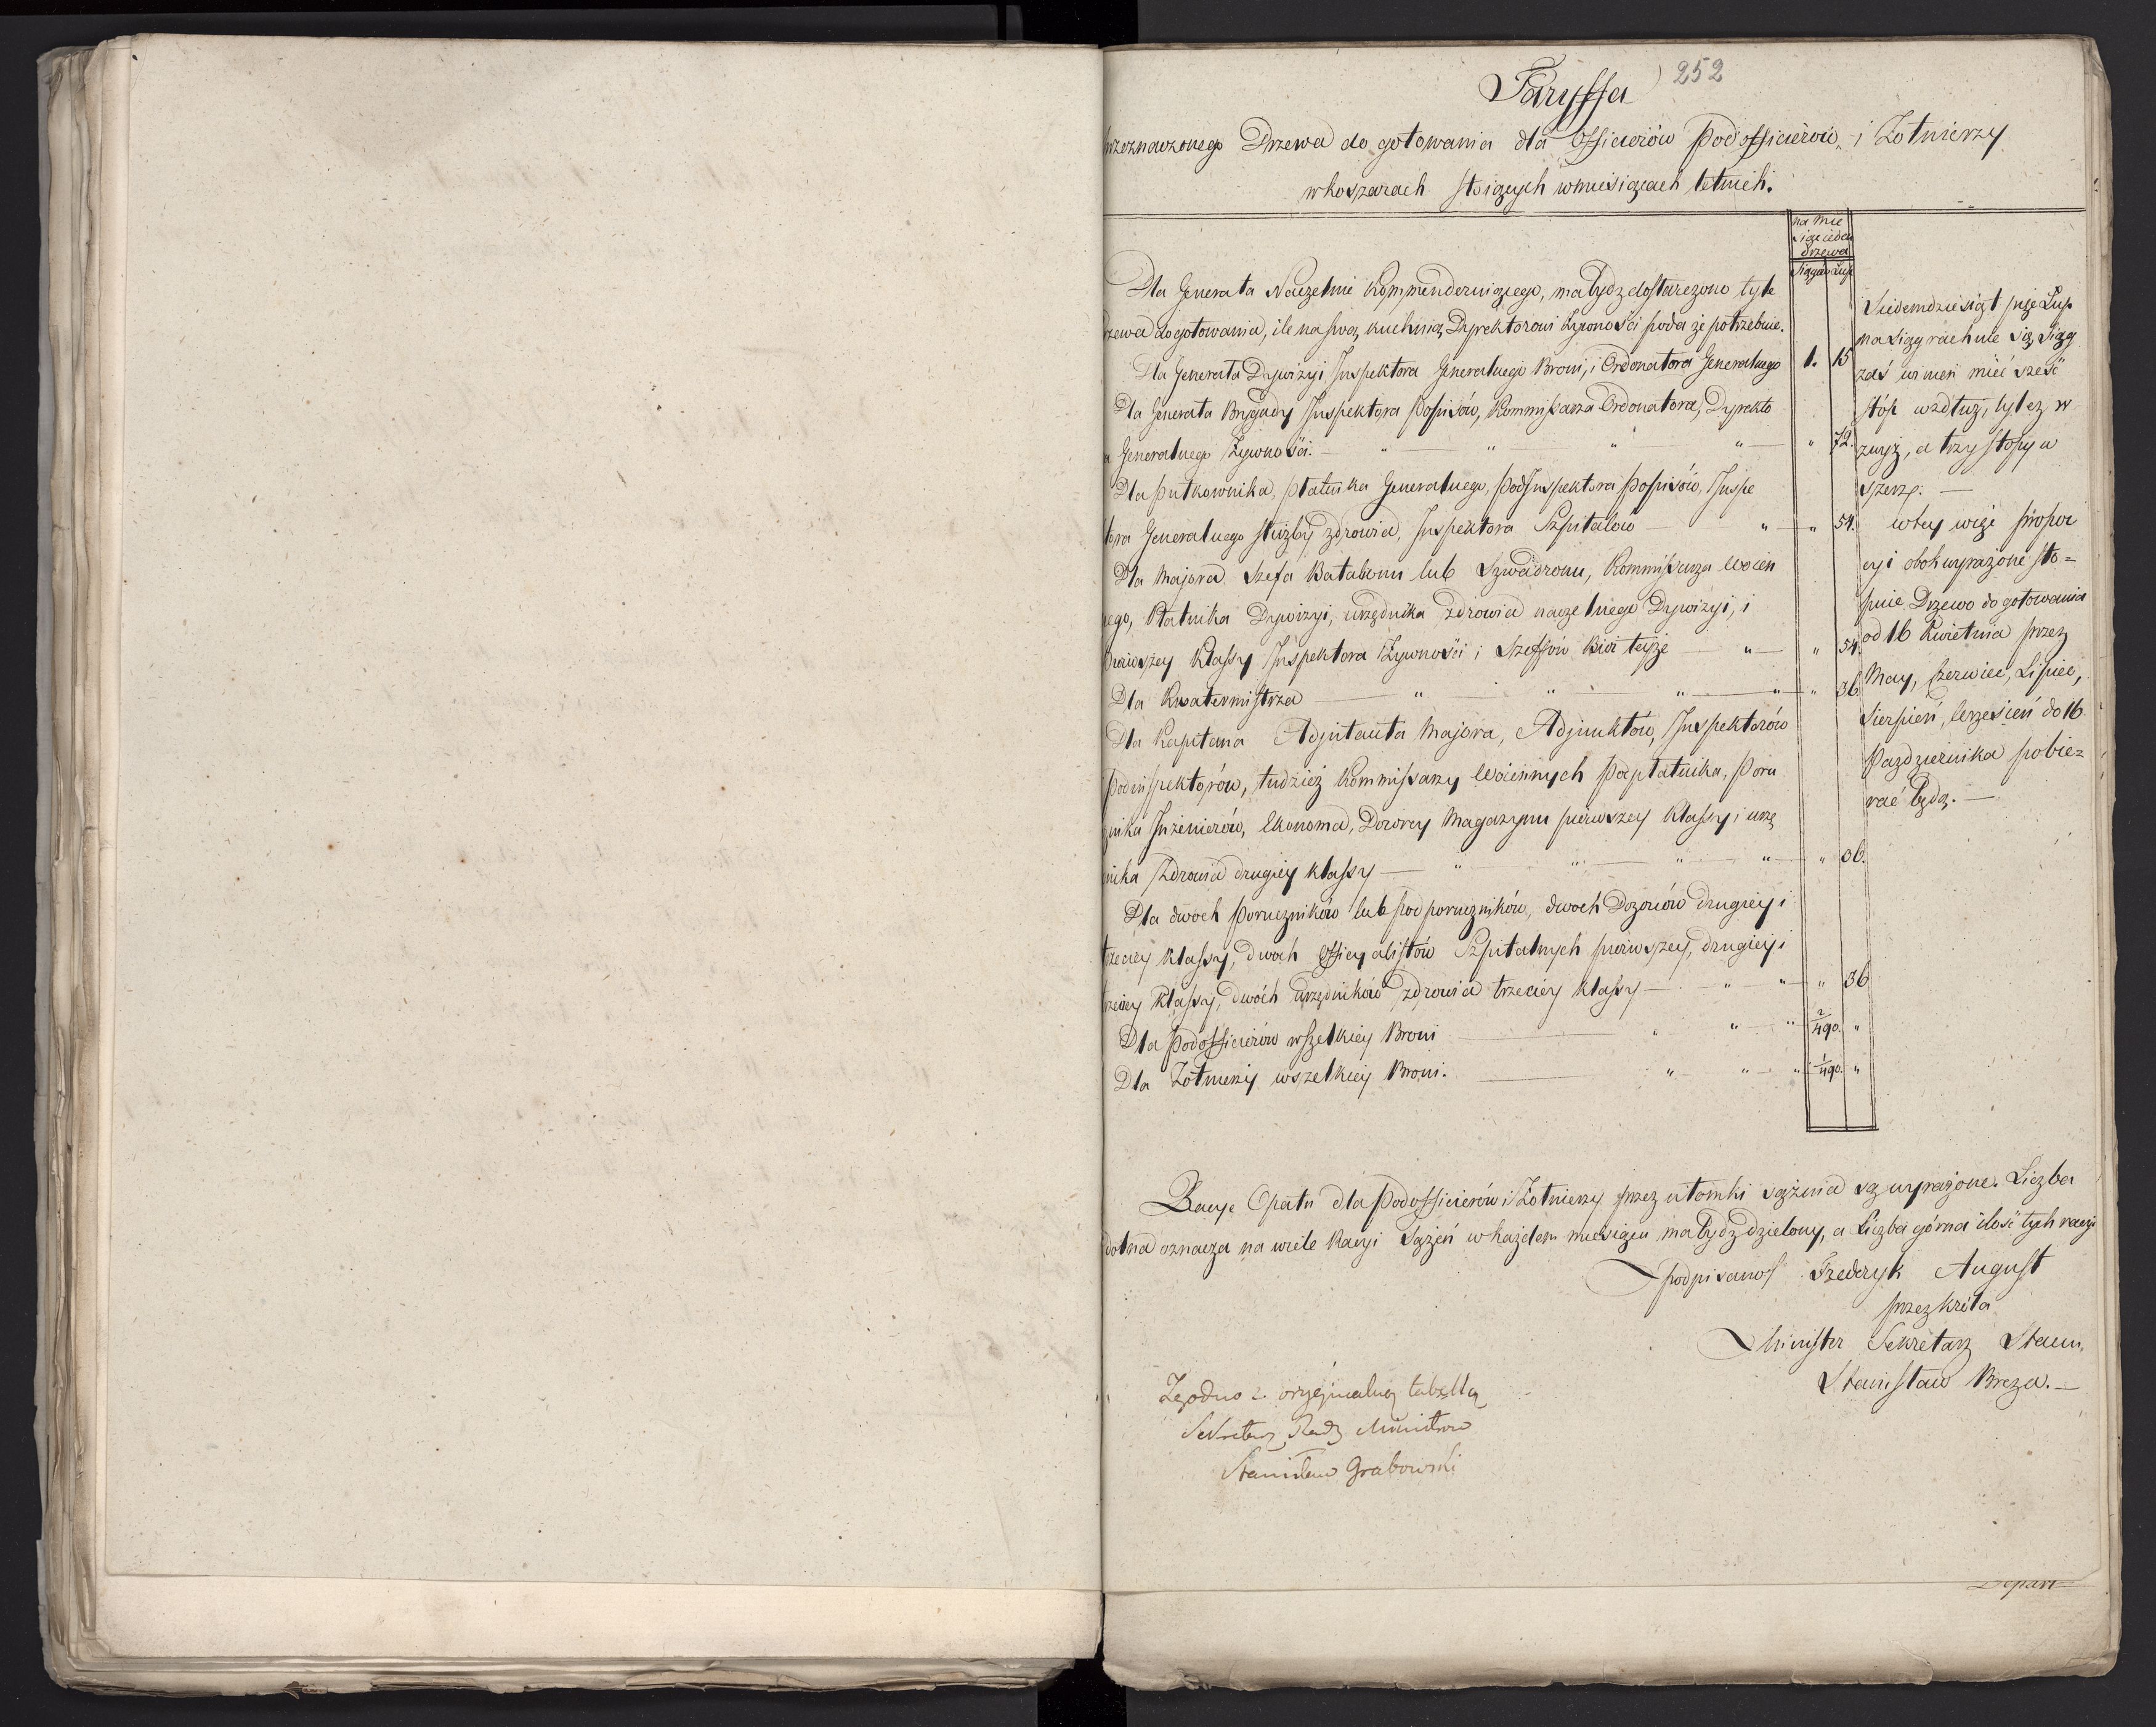 252
Taryffa
przeznaczonego Drzewa do gotowania dla Officierów Podofficierów i Żołnierzy
w koszarach stoiących w miesiącach letnich.
na mie
siąc ieden
drzewa
Sągów Łup
Dla Generała Naczelnie Kommenderuiącego, ma bydz dostarczono tyle
drzewa do gotowania, ile na swą kuchnią, Dyrektorowi Żywności poda że potrzebuie.
Dla Generała Dywizyi Inspektora Generalnego Broni, i Ordonatora Generalnego 1. 15
Dla Generała Brygady Inspektora Popisów, Kommissarza Ordonatora, Dyrekto
a Generalnego Żywności. — " — " — " — " — " 72.
Dla Pułkownika, Płatnika Generalnego, Podinspektora Popisów, Inspe
tora Generalnego służby zdrowia, Inspektora Szpitalów — " — " 54.
Dla Majora Szefa Batalionu lub Szwadronu, Kommissarza Woien
nego, Płatnika Dywizyi, urzędnika zdrowia naczelnego Dywizyi, i
pierwszey Klassy Inspektora Żywności i Szeffów Biór teyże — " — " 54.
Dla Kwatermistrza — " — " — " — " — " 36
Dla Kapitana Adjutanta Majora, Adjunktów, Inspektorów
Podinspektorów, tudzież Kommissarzy Woiennych Płatnika, Poru
znika Inżenierów, Ekonoma, Dozorcy Magazynu pierwszey Klassy, i urzę
nika Zdrowia drugiey klassy — " — " — " — " — " 36.
Dla dwoch Poruczników lub podporuczników, dwoch Dozorców drugiey i
trzeciey klassy, dwoch Officyalistów Szpitalnych pierwszey, drugiey i
trzeciey Klassy, dwóch urzędników zdrowia trzeciey klassy — " — " — " 36
Dla Podofficierów wszelkiey Broni — " — " — " 2/490. "
Dla Żołnierzy wszelkiey Broni. — " — " — " 1/490. "
Siedemdziesiąt pięć Łup
na Sąg rachuie się, Sąg
zaś winien mieć sześć
stóp wzdłuż, tyleż w
zwyż, a trzy stopy w
szerz. —
w tey więc propor
cyi obok wyrażone sto=
pnie Drzewo do gotowania
od 16 Kwietnia przez
May, Czerwiec, Lipiec,
Sierpień, Wrzesień do 16
Pazdziernika pobie=
rać będą. —
Racye Opału dla Podofficierów i Żołnierzy przez ułomki sążnia są wyrażone. Liczba
dolna oznacza na wiele Racyi Sążeń w każdem miesiącu ma bydz dzielony, a Liczba górna ilość tych racyi
podpisano Frederyk August
przez Króla
Minister Sekretarz Stanu,
Stanisław Breza. —
Zgodno z oryginalną tabellą
Sekretarz Rady Ministrów
Stanisław Grabowski
Depart=